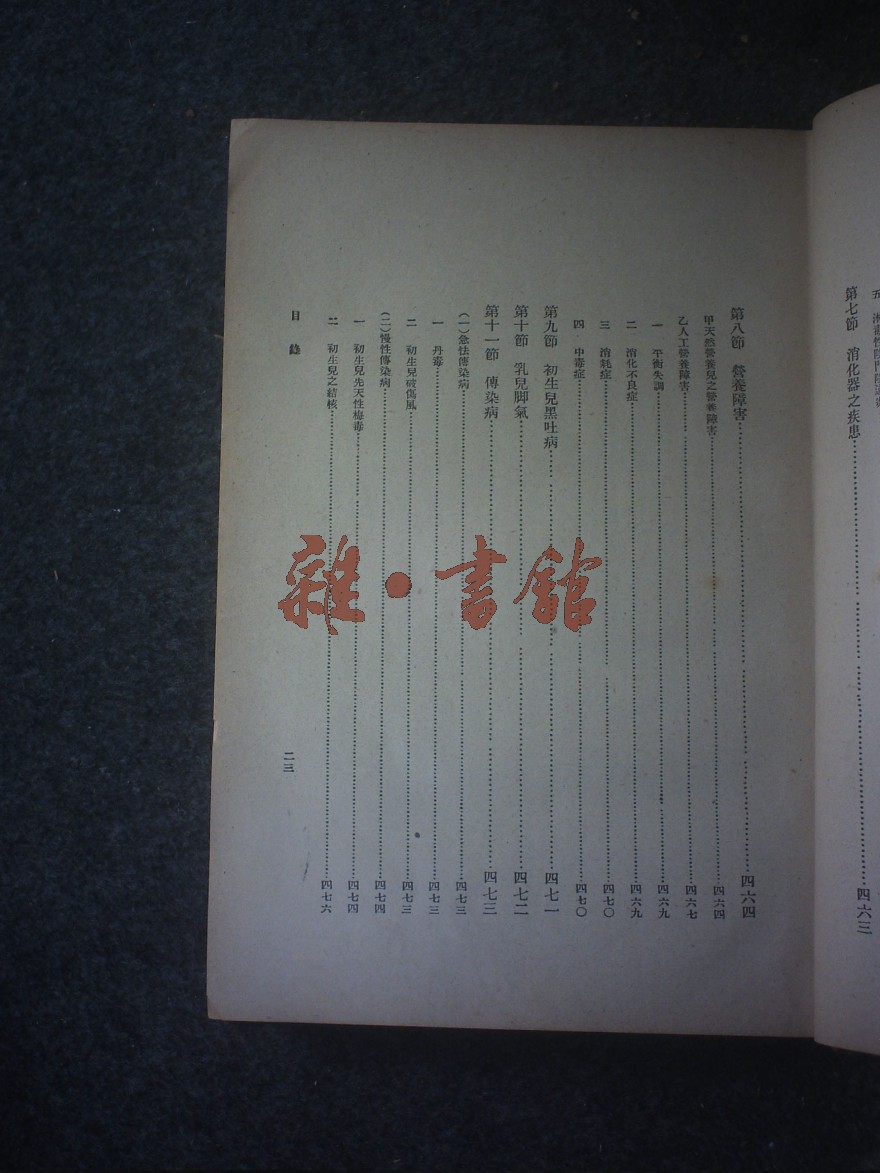 第七節　消化器之疾患……四六三
第八節　營養障害……四六四
甲天然營養兒之營養障害……四六四
乙人工營養障害……四六七
一　平衡失調……四六九
二　消化不良症……四六九
三　消耗症……四七〇
四　中毒症……四七〇
第九節　初生兒黑吐病……四七一
第十節　乳兒脚氣……四七二
第十一節　傳染病……四七三
(一)急性傳染病……四七三
一　丹毒……四七三
二　初生兒破傷風……四七三
(二)慢性傳染病……四七四
一　初生兒先天性梅毒……四七四
二　初生兒之結核……四七六
目錄
二三
雜・書館